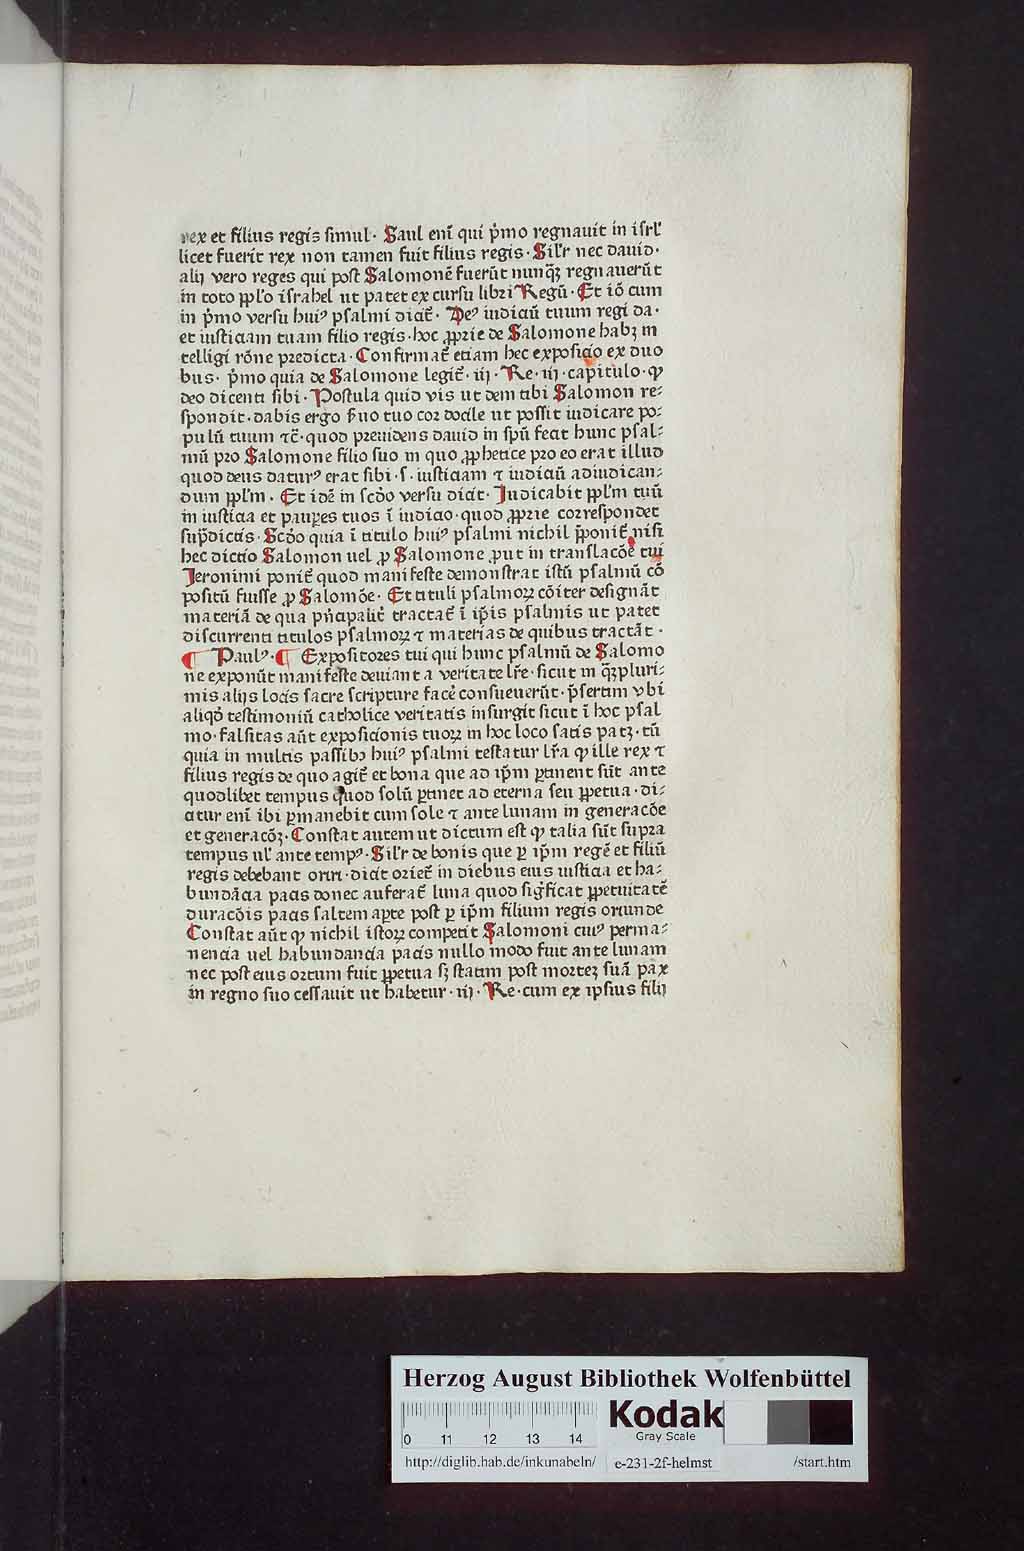 rex et filius regis simul· Saul eni̅ qui p̍mo regnauit in isrl̕
licet fuerit rex non tamen fuit filius regis· Sil̕r nec dauid·
alij vero reges qui post Salomone̅ fueru̅t nunq̅ꝫ regnaueru̅t
in toto ppl̕o israhel ut patet ex cursu libri Regu̅· Et io̅ cum
in p̍mo versu huiꝰ psalmi dicit̅· Deꝰ iudiciu̅ tuum regi da·
et iusticiam tuam filio regis· hoc ꝓprie de Salomone habꝫ in
telligi ro̅ne predicta· Confirmat̅ etiam hec exposicio ex duo
bus· p̍mo quia de Salomone legit̅· iij· Re· iij· capitulo· ꝙ
deo dicenti sibi· Postula quid vis ut dem tibi Salomon re⸗
spondit· dabis ergo s̍uo tuo cor docile ut possit iudicare po⸗
pulu̅ tuum ⁊c̅· quod preuidens dauid in spu̅ fecit hunc psal⸗
mu̅ pro Salomone filio suo in quo ꝓphetice pro eo erat illud
quod deus daturꝰ erat sibi· s· iusticiam ⁊ iudiciu̅ adiudican⸗
dum ppl̕m· Et ide̅ in scd̕o versu dicit· Judicabit ppl̕m tuu̅
in iusticia et pauꝑes tuos i̅ iudicio· quod ꝓprie correspondet
sup̍dictis· Scd̕o quia i̅ titulo huiꝰ psalmi nichil p̅ponit̅ nisi
hec dictio Salomon uel ꝓ Salomone ꝓut in translaco̅e tui
Jeronimi ponit̅ quod manifeste demonstrat istu̅ psalmu̅ co̅
positu̅ fuisse ꝓ Salomo̅e· Et tituli psalmoꝝ co̅iter designa̅t
materia̅ de qua pn̍cipalit̍ tractat̅ i̅ ip̅is psalmis ut patet
discurrenti titulos psalmoꝝ ⁊ materias de quibus tracta̅t·
¶ Paulꝰ· ¶ Expositores tui qui hunc psalmu̅ de Salomo
ne exponu̅t manifeste deuiant a veritate lr̅e· sicut in q̅ꝫpluri⸗
mis alijs locis sacre scripture facer̍ consueueru̅t· p̍sertim vbi
aliqd̍ testimoniu̅ catholice veritatis insurgit sicut i̅ hoc psal
mo· falsitas au̅t exposicionis tuoꝝ in hoc loco satis patꝫ· tu̅
quia in multis passibꝫ huiꝰ psalmi testatur lr̅a ꝙ ille rex ⁊
filius regis de quo agit̅ et bona que ad ip̅m ꝑtinent su̅t ante
quodlibet tempus quod solu̅ ꝑtinet ad eterna seu ꝑpetua· di⸗
citur eni̅ ibi ꝑmanebit cum sole ⁊ ante lunam in generaco̅e
et generaco̅ꝫ· Constat autem ut dictum est ꝙ talia su̅t supra
tempus ul̕ ante tempꝰ· Sil̕r de bonis que ꝑ ip̅m rege̅ et filiu̅
regis debebant oriri· dicit oriet̅ in diebus eius iusticia et ha⸗
bunda̅cia pacis donec auferat̅ luna quod sig̍ficat ꝑpetuitate̅
duraco̅is pacis saltem aꝑte post ꝑ ip̅m filium regis oriunde
Constat au̅t ꝙ nichil istoꝝ competit Salomoni cuiꝰ perma⸗
nencia uel habundancia pacis nullo modo fuit ante lunam
nec post eius ortum fuit ꝑpetua sꝫ statim post morteꝫ sua̅ pax
in regno suo cessauit ut habetur· iij· Re· cum ex ipsius filij
Herzog August Bibliothek Wolfenbüttel
0 11 12 13 14
Kodak
Gray Scale
http://diglib.hab.de/inkunabeln/ e-231-2f-helmst /start.htm